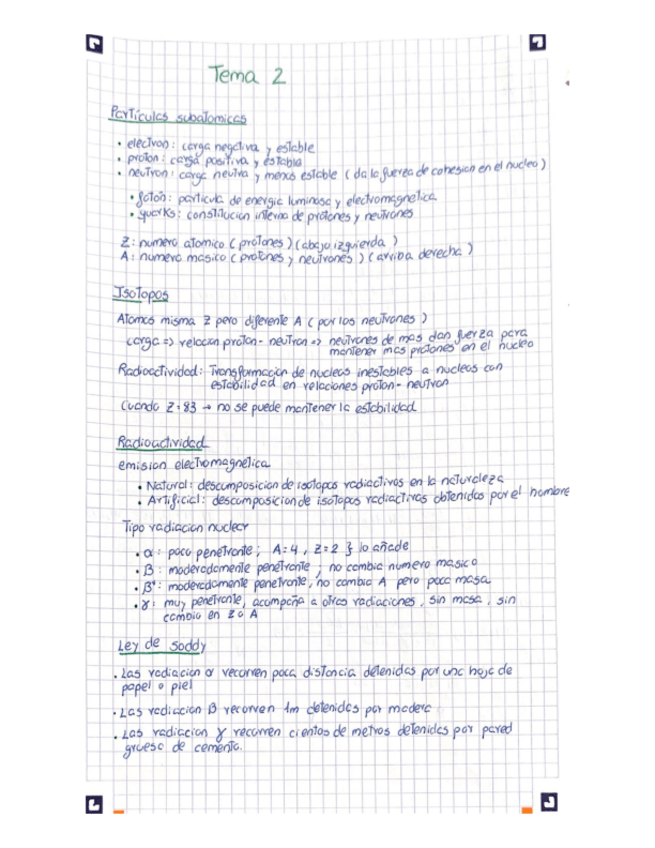 Tema 2
Particulas subatomicas
• electron: carga negativa y estable
• proton: carga positiva y estable
• neutron: carga neutra y menos estable (da la fuerza de cohesion en el nucleo)
• foton: particula de energia luminosa y electromagnetica
• quarks: constitucion interna de protones y neutrones
Z: numero atomico (protones) (abajo izquierda)
A: numero masico (protones y neutrones) (arriba derecha)
Isotopos
Atomos misma Z pero diferente A (por los neutrones)
carga => relacion proton-neutron => neutrones de mas dan fuerza para
mantener mas protones en el nucleo
Radioactividad: Transformacion de nucleos inestables a nucleos con
estabilidad en relaciones proton-neutron
Cuando Z=83 → no se puede mantener la estabilidad
Radioactividad
emision electromagnetica
• Natural: descomposicion de isotopos radiactivos en la naturaleza
• Artificial: descomposicion de isotopos radiactivos obtenidos por el hombre
Tipo radiacion nuclear
• α: poco penetrante; A=4, Z=2 } lo añade
• β: moderadamente penetrante; no cambia numero masico
• β⁺: moderadamente penetrante, no cambia A pero poca masa
• γ: muy penetrante, acompaña a otras radiaciones, sin masa, sin
cambio en Z o A
Ley de Soddy
• Las radiacion α recorren poca distancia detenidas por una hoja de
papel o piel
• Las radiacion β recorren 1m detenidas por madera
• Las radiacion γ recorren cientos de metros detenidas por pared
gruesa de cemento.